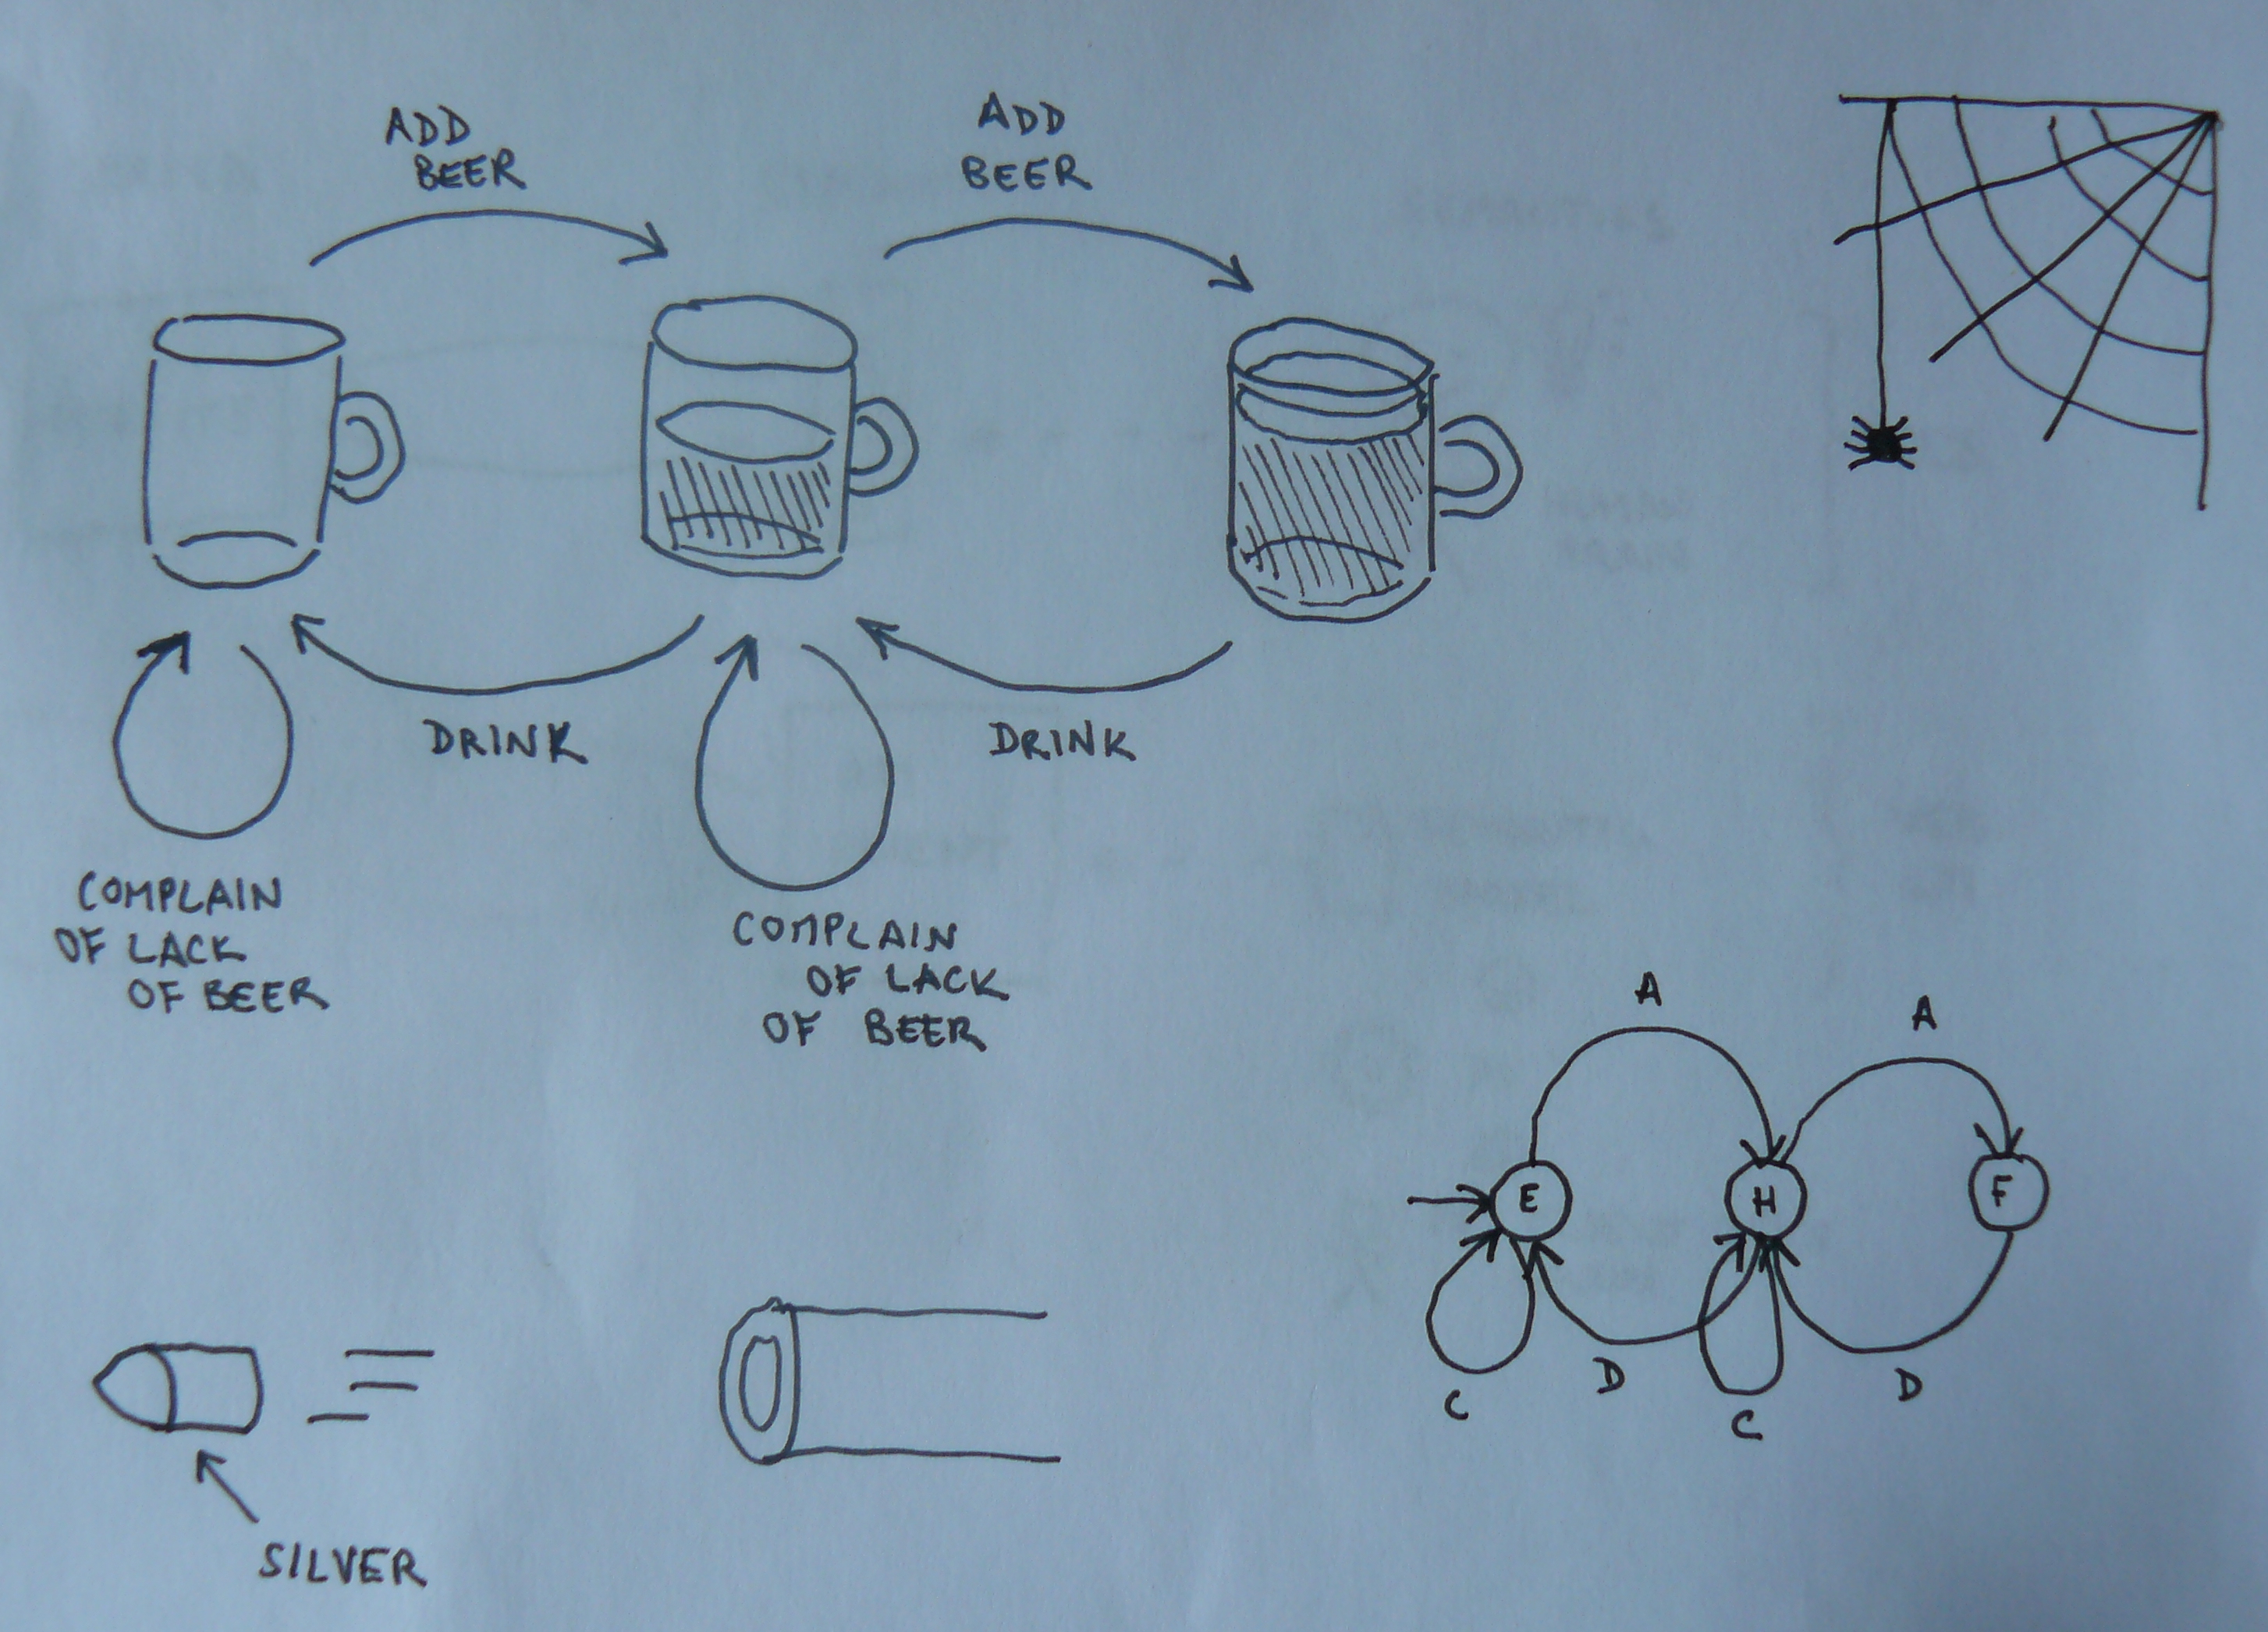 ADD
BEER
ADD
BEER
DRINK
DRINK
COMPLAIN
OF LACK
OF BEER
COMPLAIN
OF LACK
OF BEER
A
A
E
H
F
C
D
C
D
SILVER